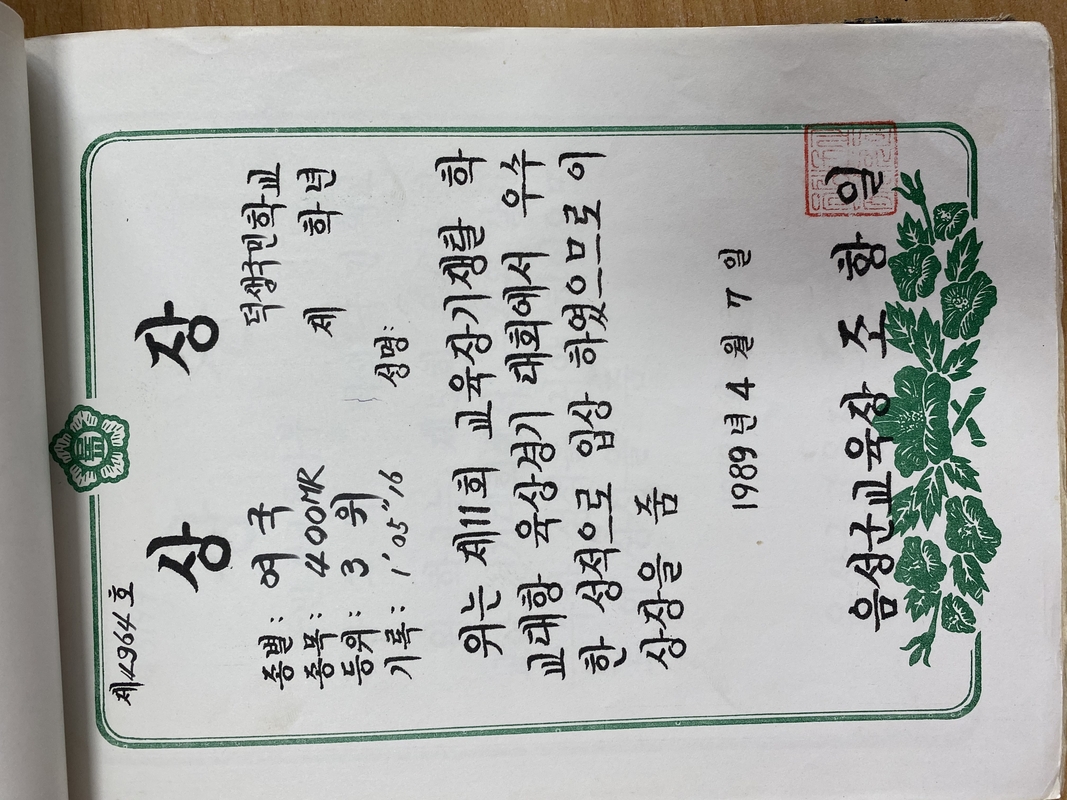 제4964호
상 장
종별: 여국 덕생국민학교
종목: 400MR 제 학년
등위: 3위
기록: 1'05"16 성명:
위는 제11회 교육장기쟁탈 학
교대항 육상경기 대회에서 우수
한 성적으로 입상 하였으므로 이
상장을 줌
1989년 4월 7일
음성군교육장 조 항 일